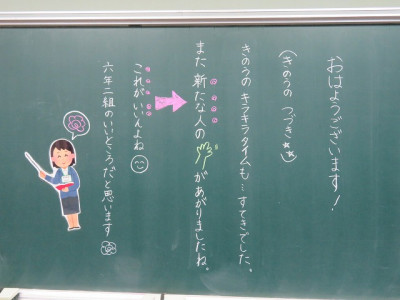 おはようございます!
(きのうの つづき★★)
きのうの キラキラタイムも…すてきでした。
また 新たな人の があがりましたね。
これが いいんよね
六年二組のいいところだと思います